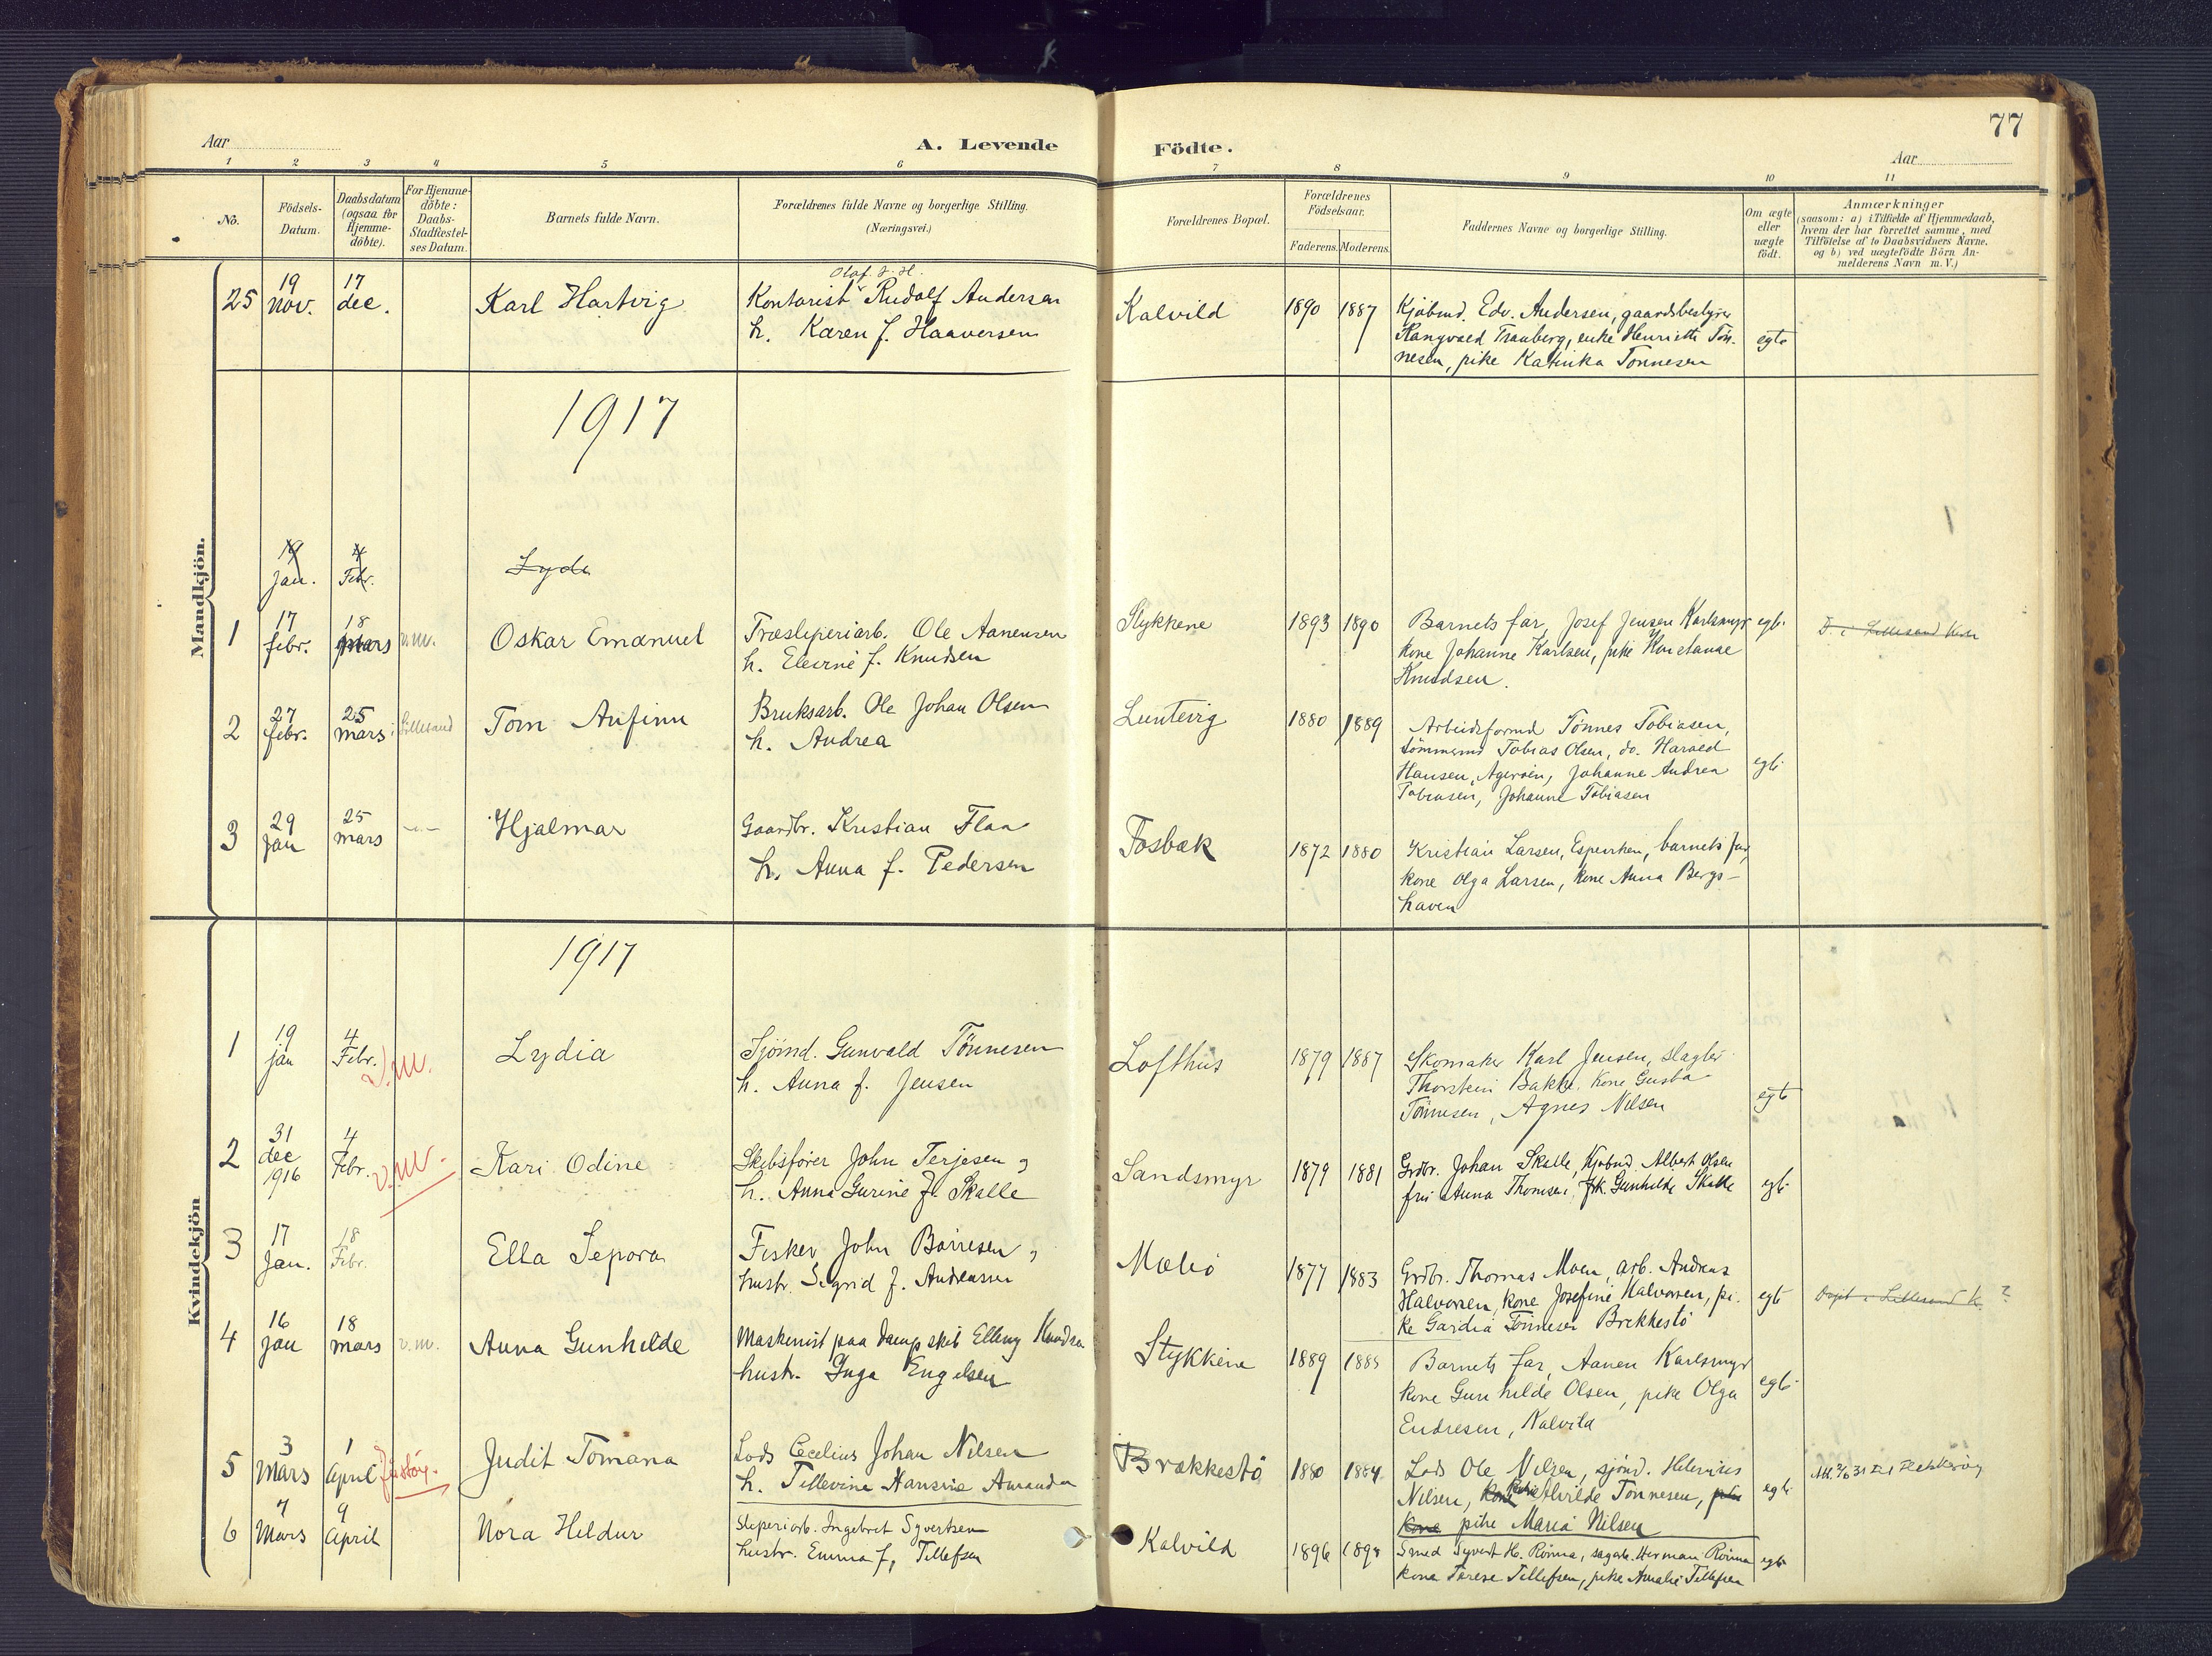 77
Aar
A. Levende
Födte.
Aar
1 2 3 4 5 6 7 8 9 10 11
No.
Födsels-Datum.
Daabsdatum (ogsaa for Hjemme-döbte).
For Hjemme-döbte: Daabs-Stadfæstel-ses Datum.
Barnets fulde Navn.
Forældrenes fulde Navne og borgerlige Stilling.
(Næringsvei.)
Forældrenes Bopæl.
Forældrenes Födselsaar.
Faderens. Moderens.
Faddernes Navne og borgerlige Stilling.
Om ægte eller uægte födt.
Anmærkninger
(saasom: a) i Tilfælde af Hjemmedaab,
hvem der har forrettet samme, med
Tilföielse af to Daabsvidners Navne.
og b) ved uægtefödte Börn An-
melderens Navn m. V.)
Mandkjön.
25 19 nov. 17 dec. Karl Hartvig
Olaf
Kontorist Rudolf Andersen
h. Karen f. Haaversen
Kalvild 1890 1887
Kjöbmd. Edv. Andersen, gaardsbestyrer
Rangvald Tranberg, enke Henriette Tön-
nesen, pike Katinka Tönnesen
egte
1917
19 Jan. 4 Febr. Lyde
1 17 febr. 18 mars v.m. Oskar Emanuel
Træsliperiarb. Ole Aanensen
h. Elevine f. Knudsen
Stykkene 1893 1890
Barnets far, Josef Jensen Karlsmyr
kone Johanne Karlsen, pike Konstanse
Knudsen.
egt.
D. i Lillesand Kirke
2 27 febr. 25 mars i Lillesand Tom Anfinn
Bruksarb. Ole Johan Olsen
h. Andrea
Luntevig 1880 1889
Arbeidsformd Tönnes Tobiasen,
tömmermd Tobias Olsen, do. Harald
Hansen, Ageröen, Johanne Andrea
Tobiasen, Johanne Tobiasen
egt.
3 29 jan 25 mars —"— Hjalmar
Gaardbr. Kristian Flaa
h. Anna f. Pedersen
Fosbæk 1872 1880
Kristian Larsen, barnets far,
kone Olga Larsen, kone Anna Bergs-
haven
Kvindekjön
1917
1 19 jan 4 Febr. v.m. Lydia
Sjömd. Gunvald Tönnesen
h. Anna f. Jensen
Lofthus 1879 1887
Skomaker Karl Jensen, slagter
Thorstein Bakke, kone Gusta
Tönnesen, Agnes Nilsen
egt
2 31 dec 1916 4 Febr. v.m. Kari Odine
Skibsförer John Terjesen,
h. Anna Gurine f. Skalle
Sandsmyr 1879 1881
Grdbr. Johan Skalle, Kjöbmd. Albert Olsen
fru Anna Thomsen, frk. Gunhilde Skalle
egt.
3 17 Jan. 18 Febr. Ella Sepora
Fisker John Börresen,
hustr. Sigrid f. Andreassen
Malö 1877 1883
Grdbr. Thomas Moen, arb. Andreas
Halvorsen, kone Josefine Halvorsen, pi-
ke Gardia Tönnesen Brekkestö
egt.
Döpt i Lillesand K. ?
4 16 jan 18 mars v.m. Anna Gunhilde
Maskinist paa dampskib Elling Knudsen
hustr. Inga Engelsen
Stykkene 1889 1885
Barnets far, Aanen Karlsmyr
kone Gunhilde Olsen, pike Olga
Endresen, Kalvild
egt.
5 3 Mars 1 April Justöy. Judit Tomana
Lods Cecelius Johan Nilsen
h. Tellevine Hansine Amanda
Brækkestö 1880 1884
Lods Ole Nilsen, sjömd. Helenius
Nilsen, kone Alvilde Tönnesen, pike
kone pike Maria Nilsen
egt.
6 7 Mars 9 April Nora Hildur
Sliperiarb. Ingebret Syvertsen
hustr. Emma f. Tellefsen
Kalvild 1896 1898
Smed Syvert H. Rönna, sagarb. Herman Rönna
kone Terese Tellefsen, pike Amalie Tellefsen
egt.